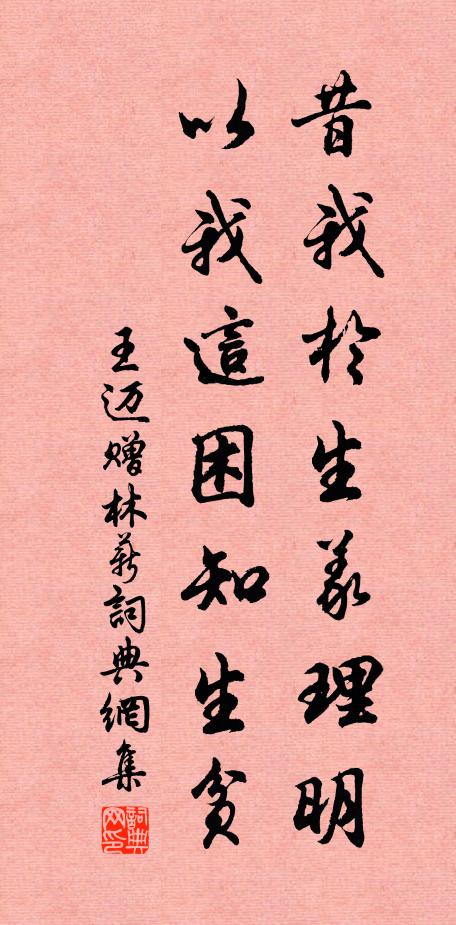 昔我於生義理明
以我這困知生貧
王迈赠林薪詞典網集
詞典网印